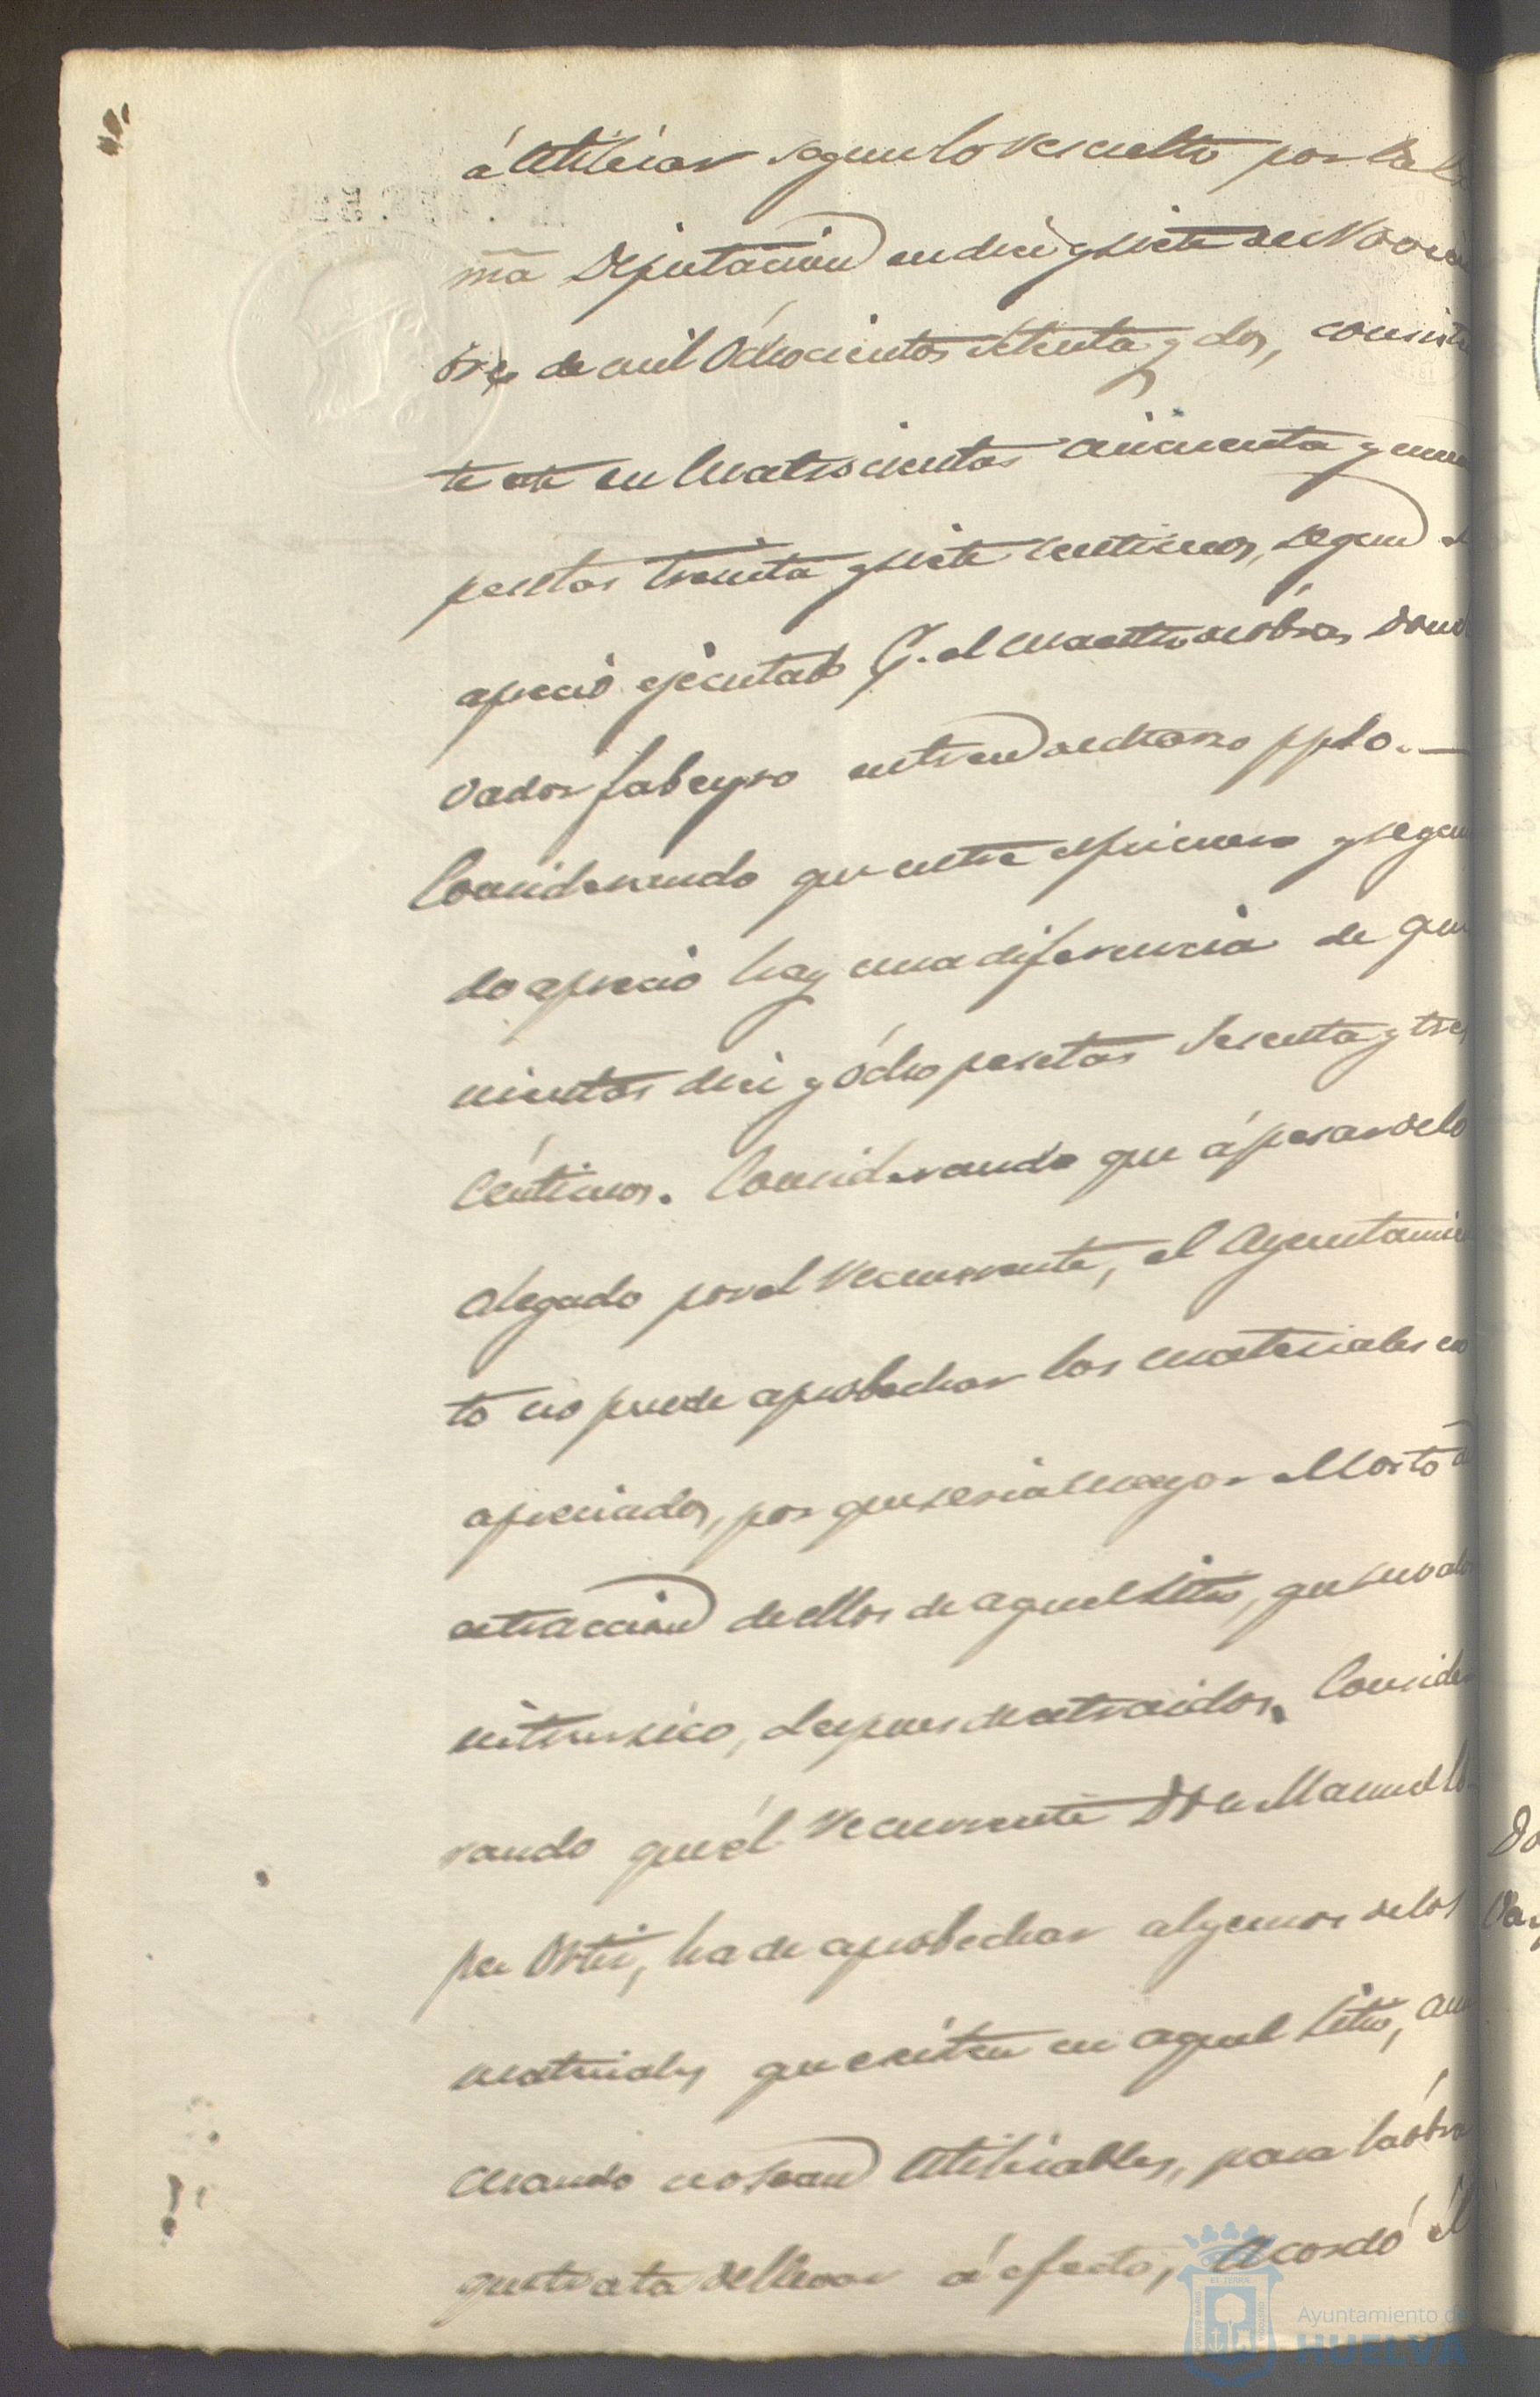 á Utilizar segun lo resuelto por la
ma Diputacion en diez y siete de Noviem
bre de mil Ochocientos Setenta y dos, consis
te este en Cuatrocientas Cincuenta y una
pesetas treinta y siete centimos, segun
aprecio ejecutado P. el maestro de obras Don
vador fabeyro en tres de Marzo ppdo. —
Considerando que entre el primero y segun
do aprecio hay una diferencia de qui
nientas diez y ócho pesetas Sesenta y tres
Céntimos. Considerando que á pesar de lo
alegado por el recurrente, el Ayuntamien
to no puede aprobechar los materiales
apreciados, por que seria mayor el Costo
extraccion de ellos de aquel Sitio, que su valor
intrinsico, despues de extraidos. Conside
rando que el recurrente Don Manuel
pez Ortiz, ha de aprobechar algunos de los
materiales que existen en aquel Sitio, aun
cuando no sean Utilizables, para la obra
que trata de llevar á efecto, Acordó él
Do
Ayuntamiento de
HUELVA